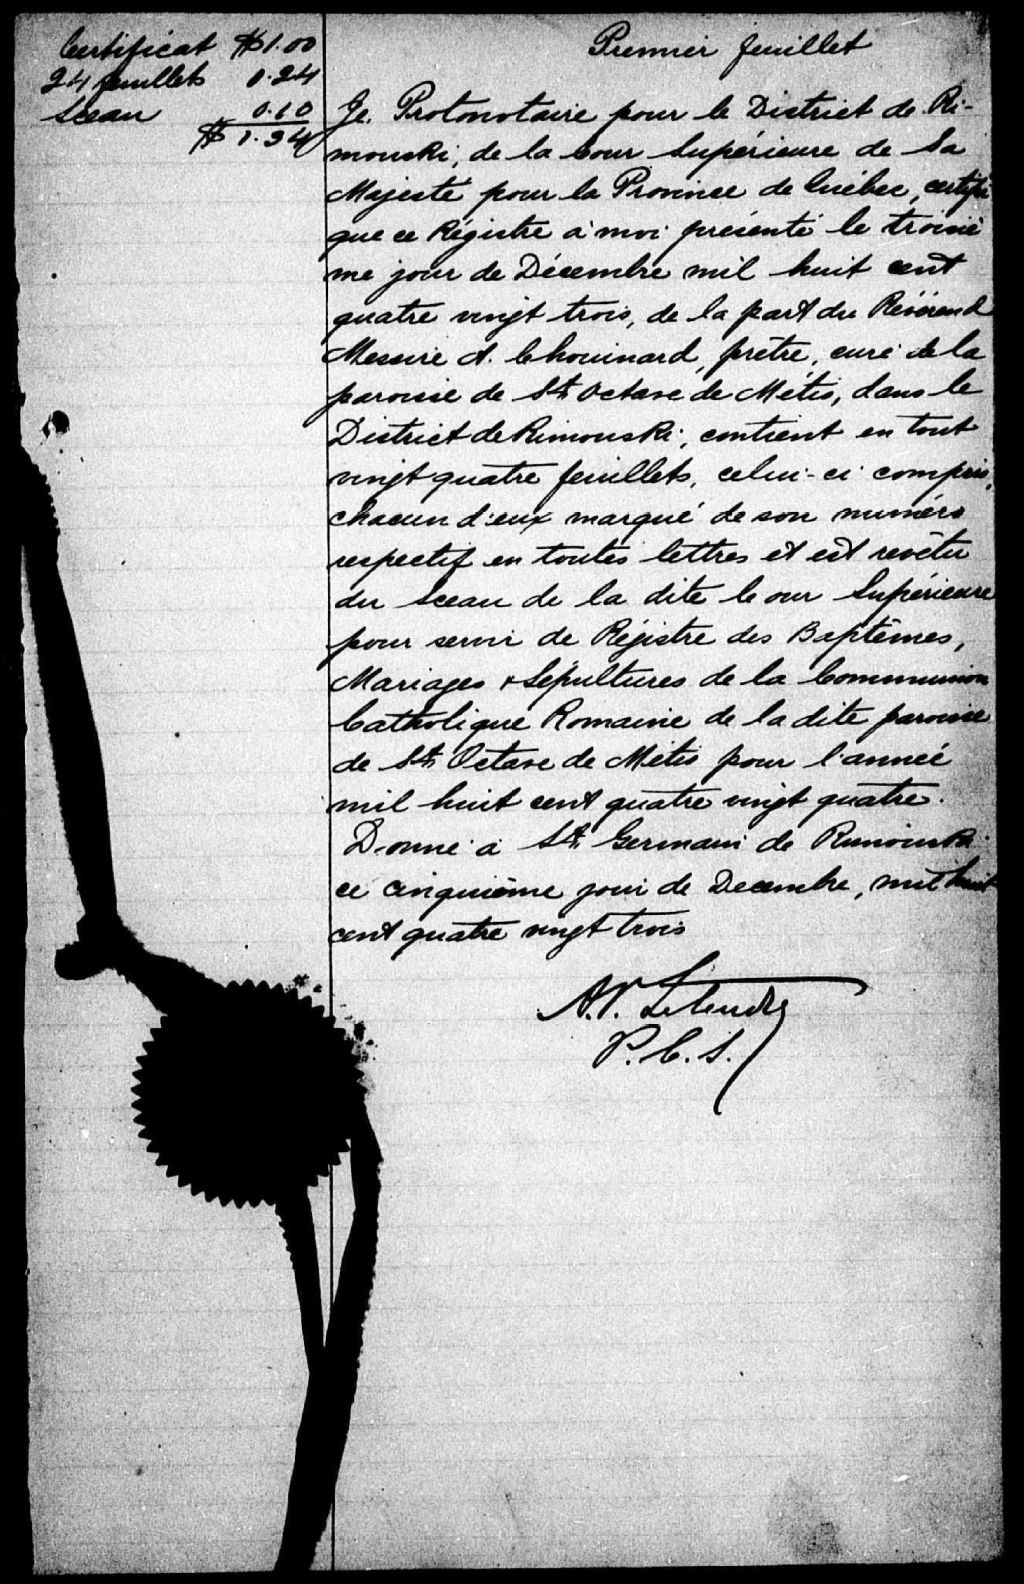 Certificat $1.00
24 feuillets 0.24
Sceau 0.10
$ 1.34
Premier feuillet
Je. Protonotaire pour le District de Ri-
mouski, de la Cour Supérieure de Sa
Majesté pour la Province de Québec, certifie
que ce Régistre à moi présenté le troisiè
me jour de Décembre mil huit cent
quatre vingt trois, de la part du Révérend
Messire A. Chouinard, prêtre, curé de la
paroisse de St. Octave de Métis, dans le
District de Rimouski, contient en tout
vingt quatre feuillets, celui-ci compris,
chacun d'eux marqué de son numéro
respectif en toutes lettres et est revêtu
du Sceau de la dite Cour Supérieure
pour servir de Régistre des Baptêmes,
Mariages & Sépultures de la Communion
Catholique Romaine de la dite paroisse
de St. Octave de Métis pour l'année
mil huit cent quatre vingt quatre.
Donné à St. Germain de Rimouski
ce cinquième jour de Decembre, mil huit
cent quatre vingt trois
A.P. Letendre
P.C.S.